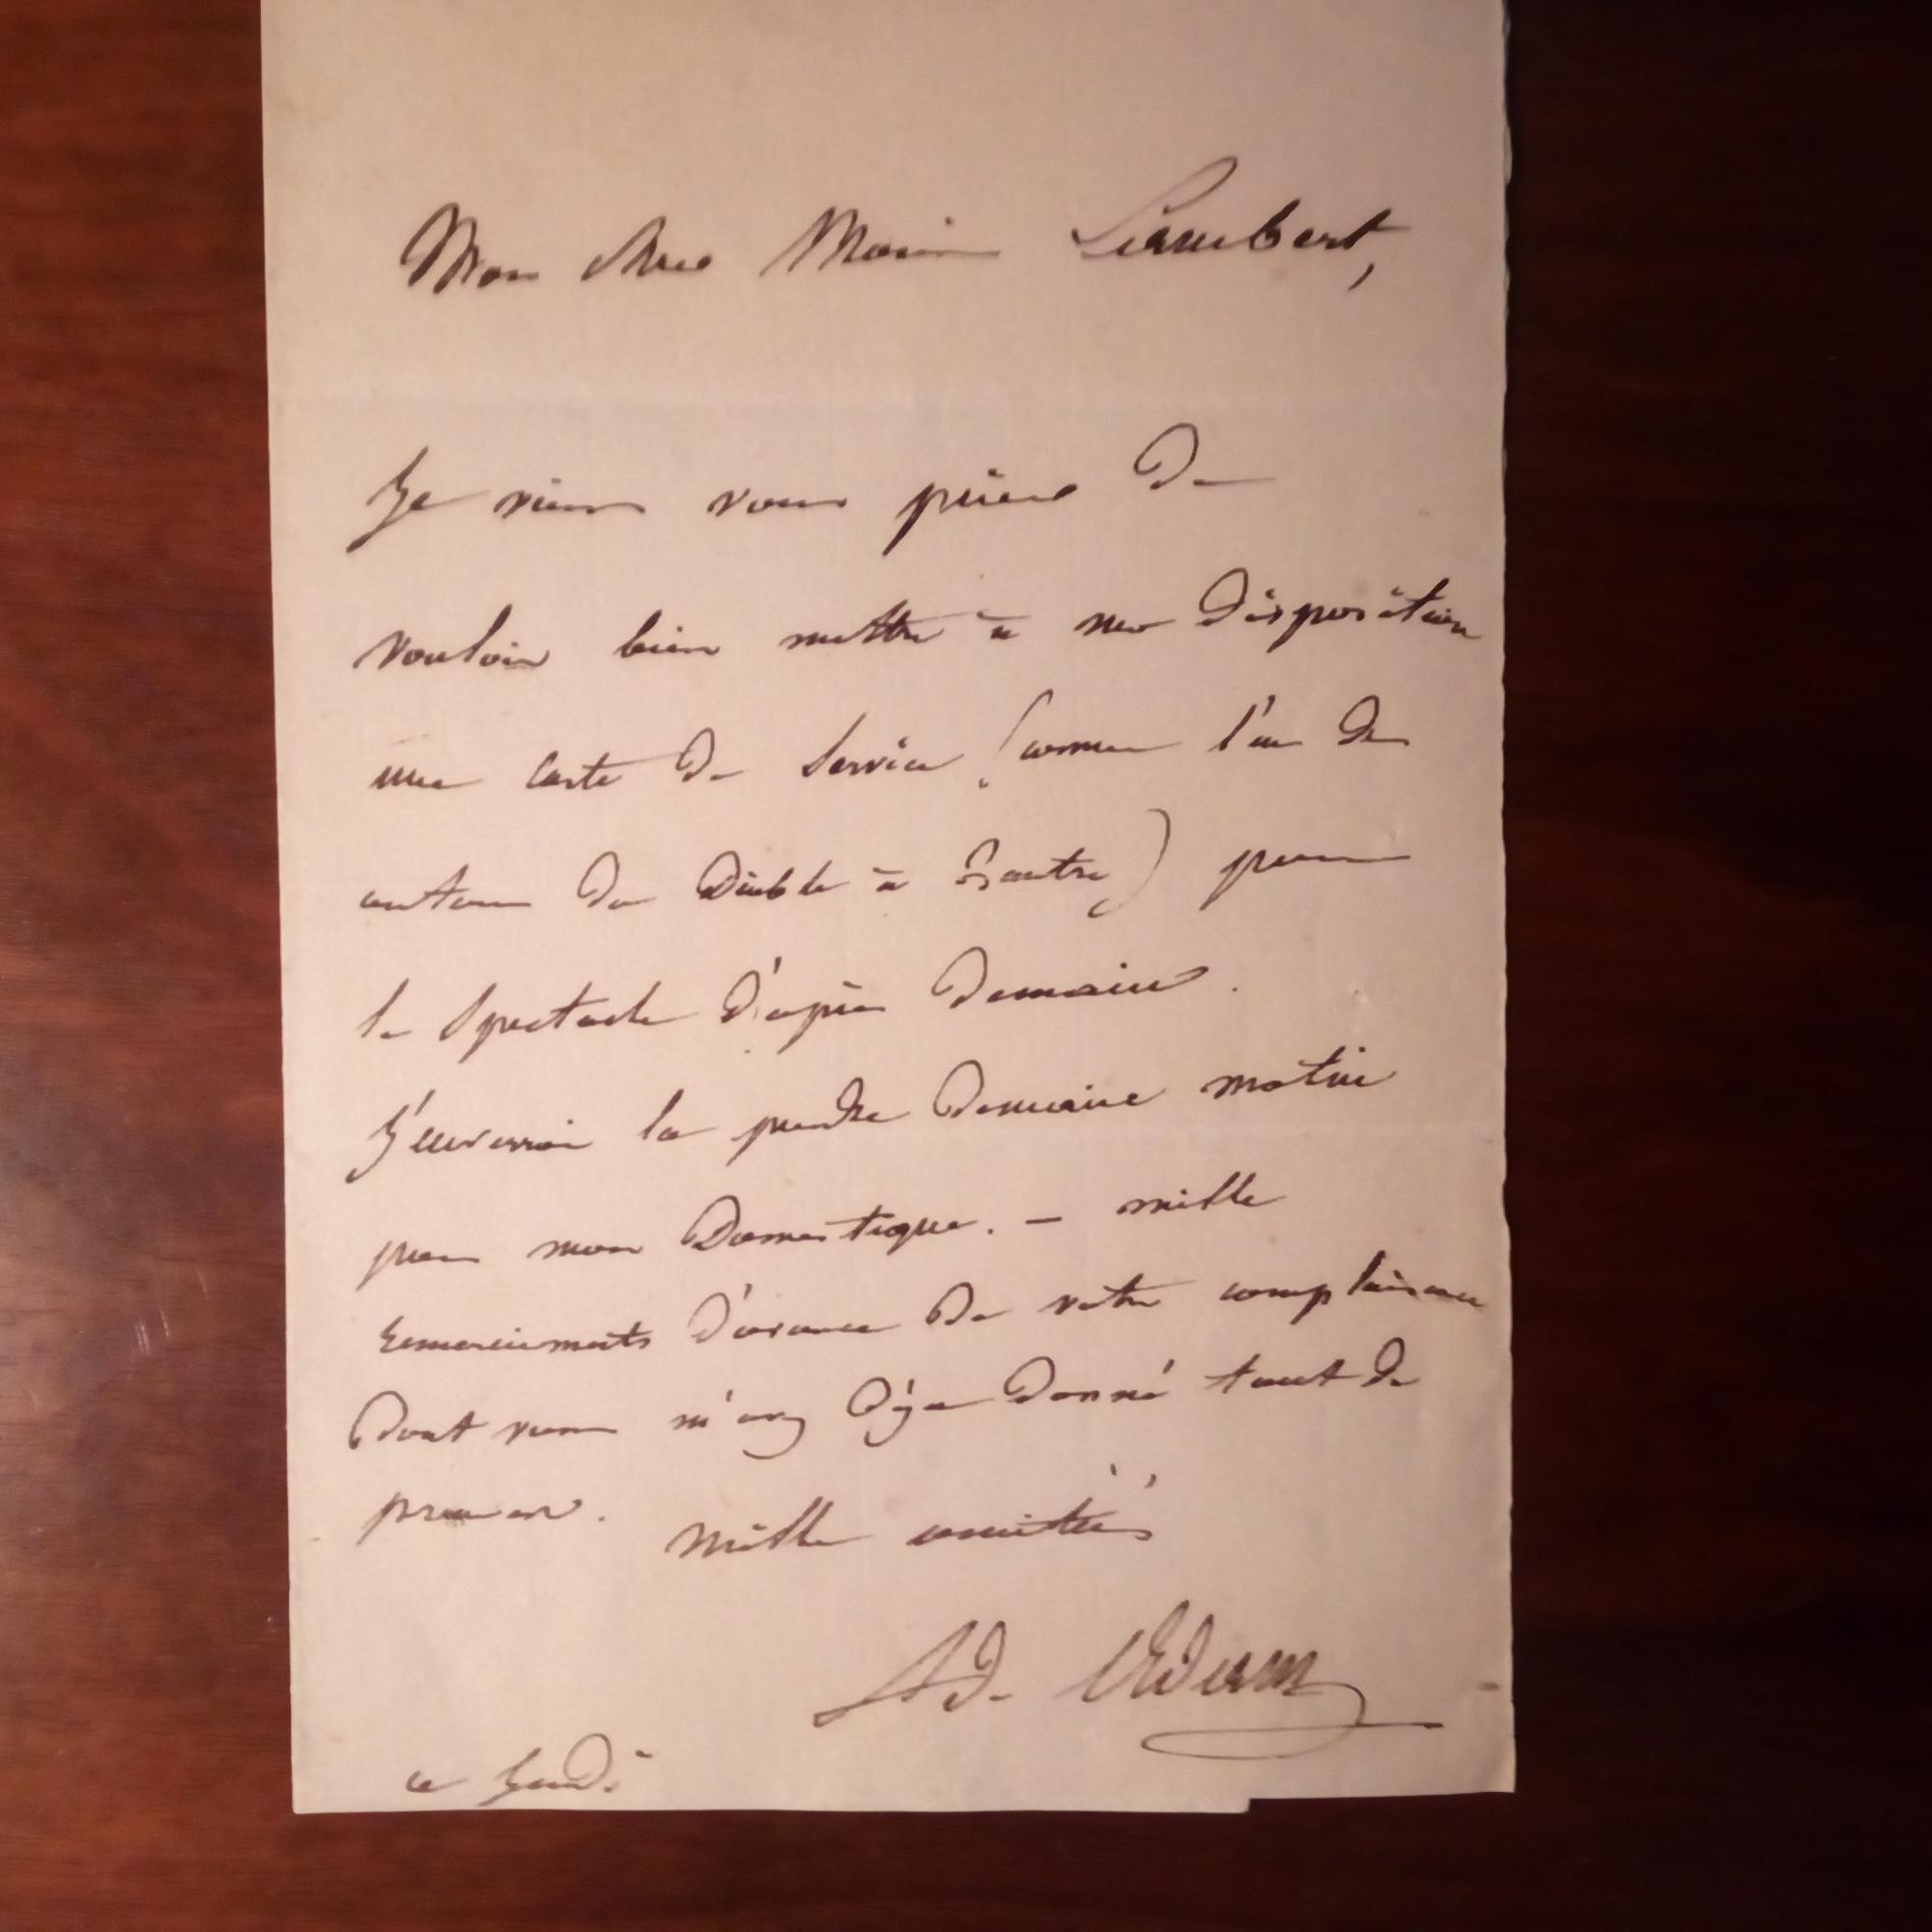 Mon cher Marin Lambert,
Je viens vous prier de
vouloir bien mettre à ma disposition
une carte de service (comme l'un des
auteurs du Diable à quatre) pour
le spectacle d'après demain.
J'enverrai la prendre demain matin
par mon domestique. — mille
remerciements d'avance de votre complaisance
dont vous m'avez déjà donné tant de
preuves.
mille amitiés
Ad. Adam
ce jeudi